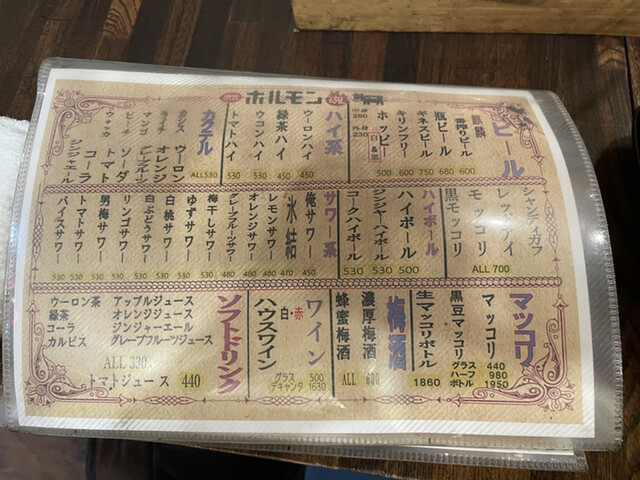 ホルモン
ビール
麒麟
一番搾りビール
瓶ビール
ギネスビール
キリンフリー
ホッピー
白&黒
500 600 750 680 600
中身
280
外身
230
ハイ系
ウーロンハイ
緑茶ハイ
ウコンハイ
トマトハイ
530 530 450 450
カクテル
カシス
ライチ
マンゴ
ピーチ
ウォッカ
ウーロン
オレンジ
グレープフルーツ
ソーダ
トマト
コーラ
ジンジャエール
ALL530
シャンディガフ
レッドアイ
モッコリ
黒モッコリ
ALL 700
ハイボール
ハイボール
ジンジャーハイボール
コークハイボール
530 530 500
サワー系
俺サワー
氷結
レモンサワー
オレンジサワー
グレープフルーツサワー
梅干しサワー
ゆずサワー
白桃サワー
白ぶどうサワー
リンゴサワー
男梅サワー
トマトサワー
バイスサワー
530 530 530 530 530 530 530 480 480 480 470 450
マッコリ
マッコリ
黒豆マッコリ
グラス 440
ハーフ 980
ボトル 1950
生マッコリボトル
1860
梅酒
濃厚梅酒
蜂蜜梅酒
ALL 600
ワイン
白・赤
ハウスワイン
グラス 500
デキャンタ 1630
ソフトドリンク
ウーロン茶 アップルジュース
緑茶 オレンジジュース
コーラ ジンジャーエール
カルピス グレープフルーツジュース
ALL 330
トマトジュース 440